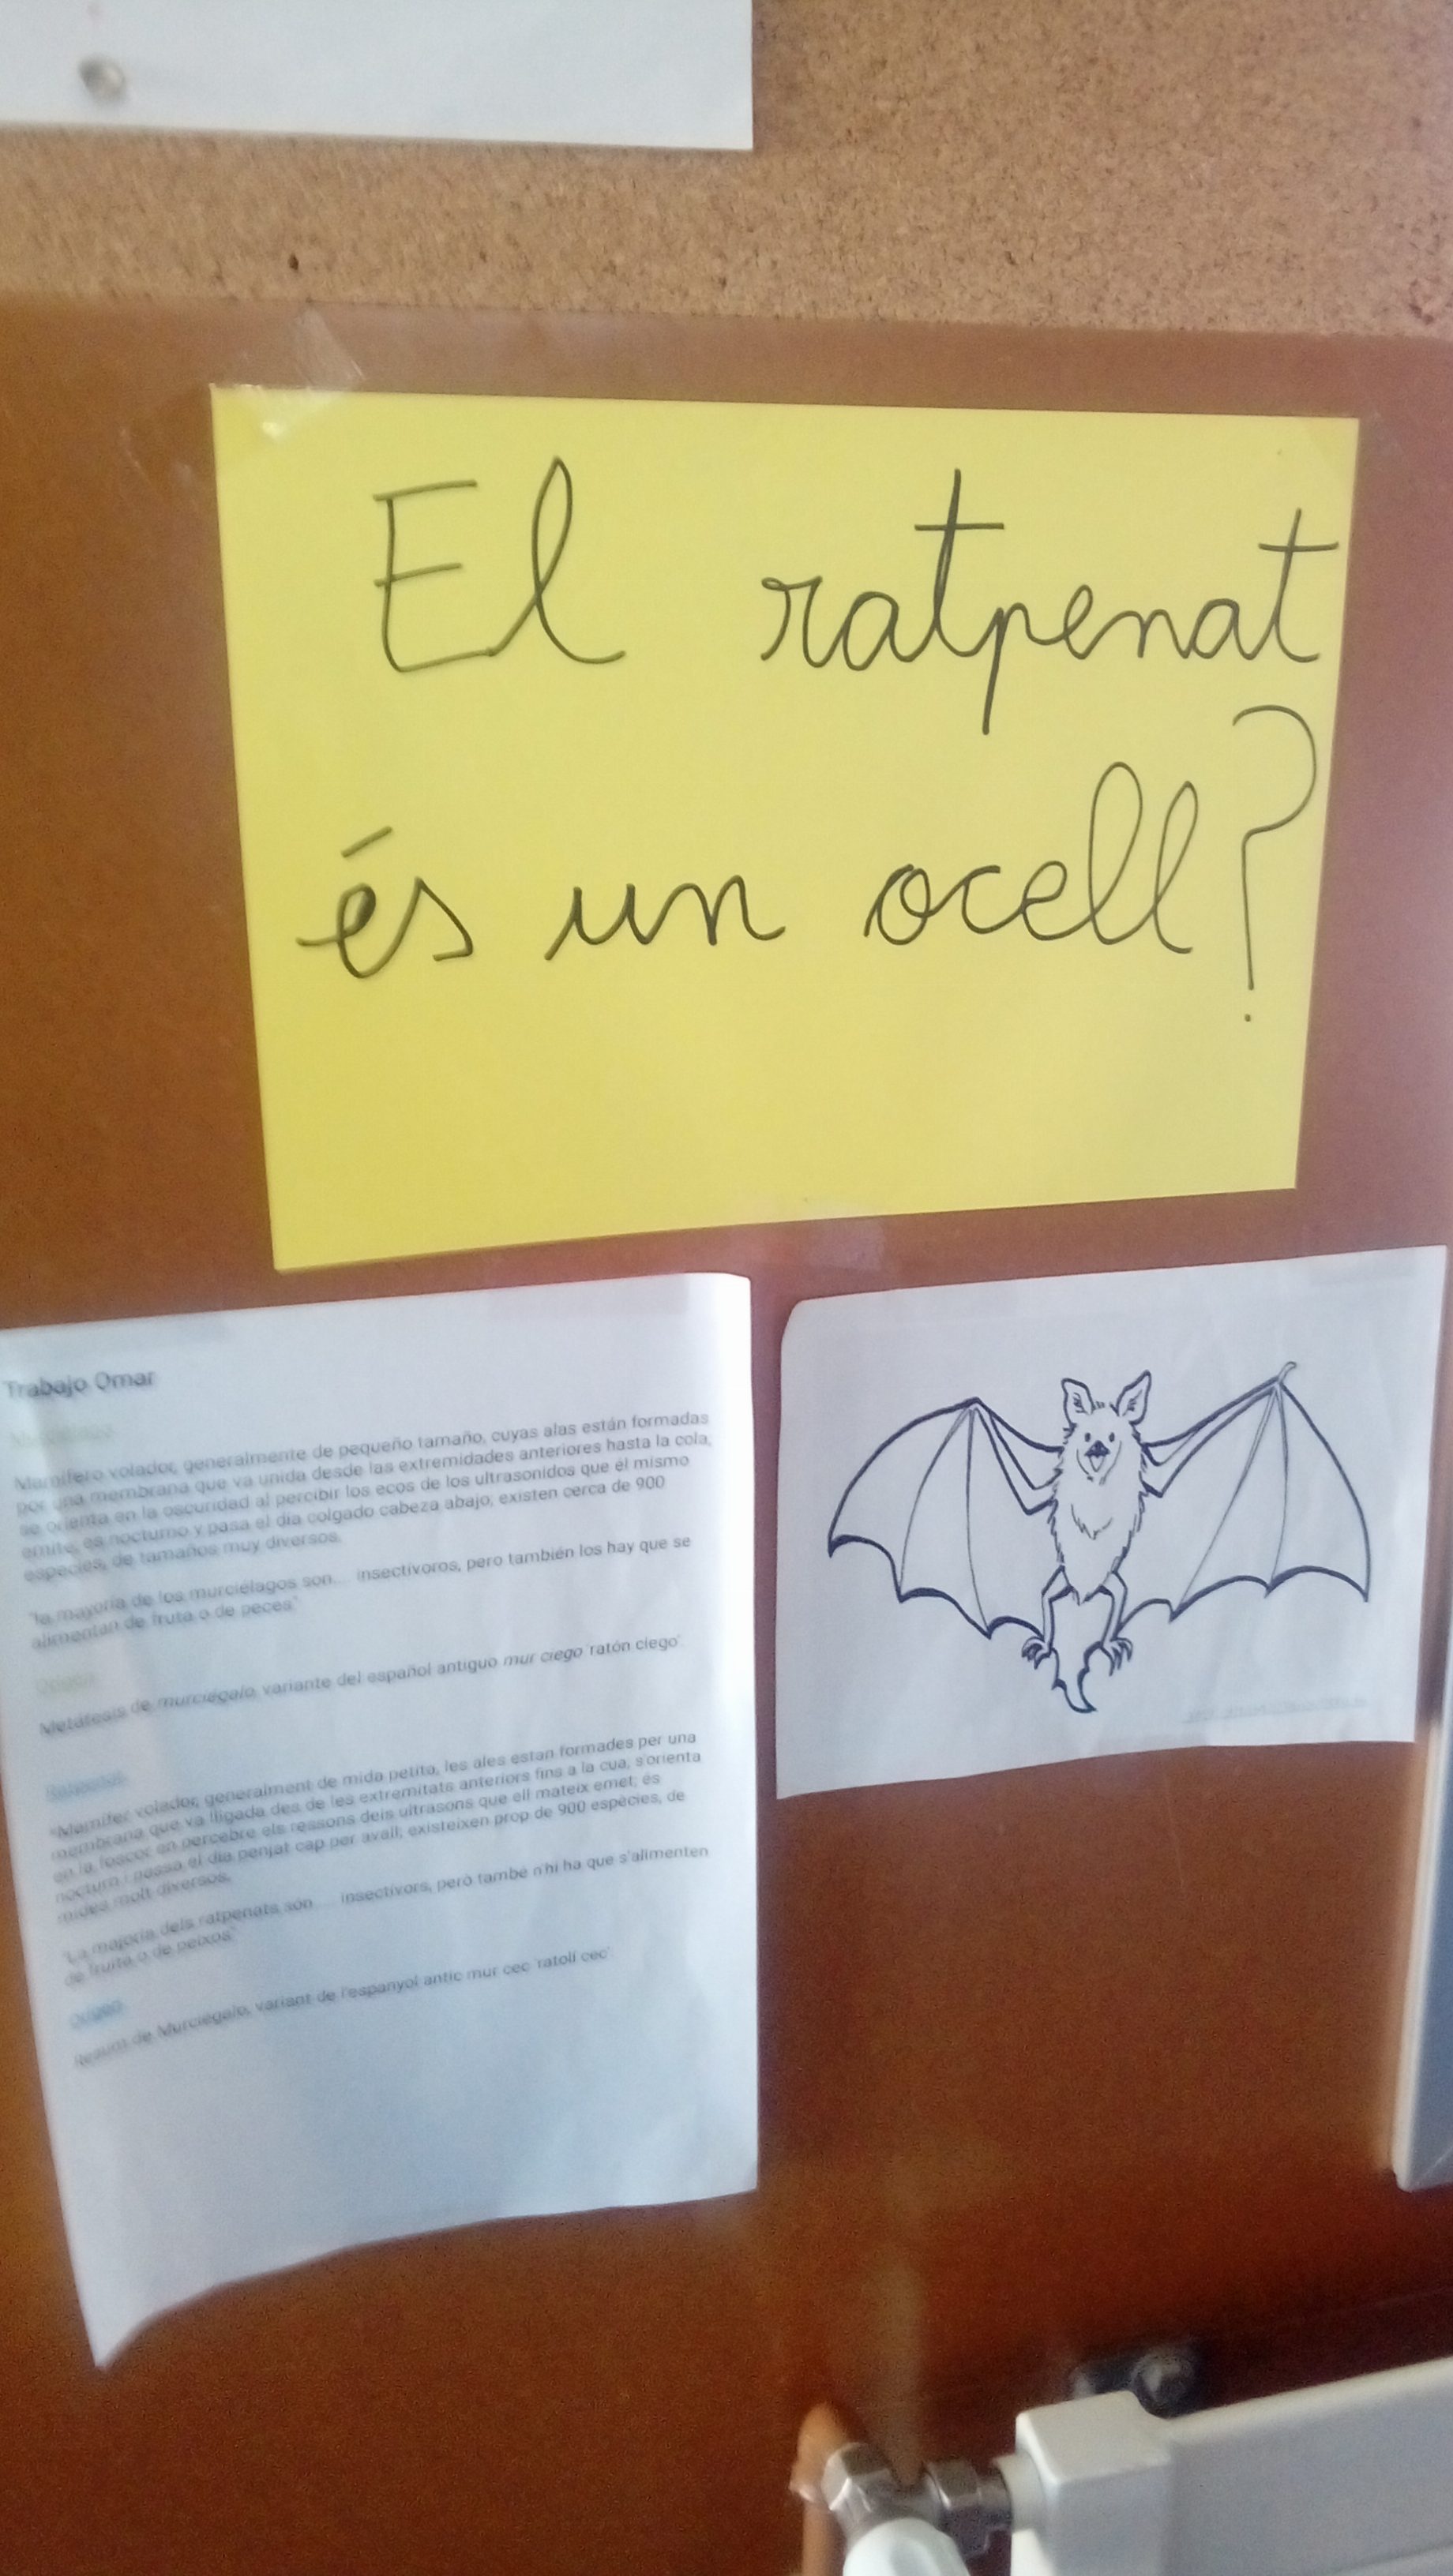 El ratpenat
és un ocell?
Trabajo Omar
Mamífero volador, generalmente de pequeño tamaño, cuyas alas están formadas
por una membrana que va unida desde las extremidades anteriores hasta la cola;
se orienta en la oscuridad al percibir los ecos de los ultrasonidos que él mismo
emite; es nocturno y pasa el día colgado cabeza abajo; existen cerca de 900
especies, de tamaños muy diversos.
"la mayoría de los murciélagos son... insectívoros, pero también los hay que se
alimentan de fruta o de peces"
Origen
Metátesis de murciégalo, variante del español antiguo mur ciego 'ratón ciego'.
Ratpenat
"Mamífer volador, generalment de mida petita, les ales estan formades per una
membrana que va lligada des de les extremitats anteriors fins a la cua; s'orienta
en la foscor en percebre els ressons dels ultrasons que ell mateix emet; és
nocturn i passa el dia penjat cap per avall; existeixen prop de 900 espècies, de
mides molt diversos.
"La majoria dels ratpenats són ... insectívors, però també n'hi ha que s'alimenten
de fruita o de peixos"
Origen
de Murciégalo, variant de l'espanyol antic mur cec 'ratolí cec'.